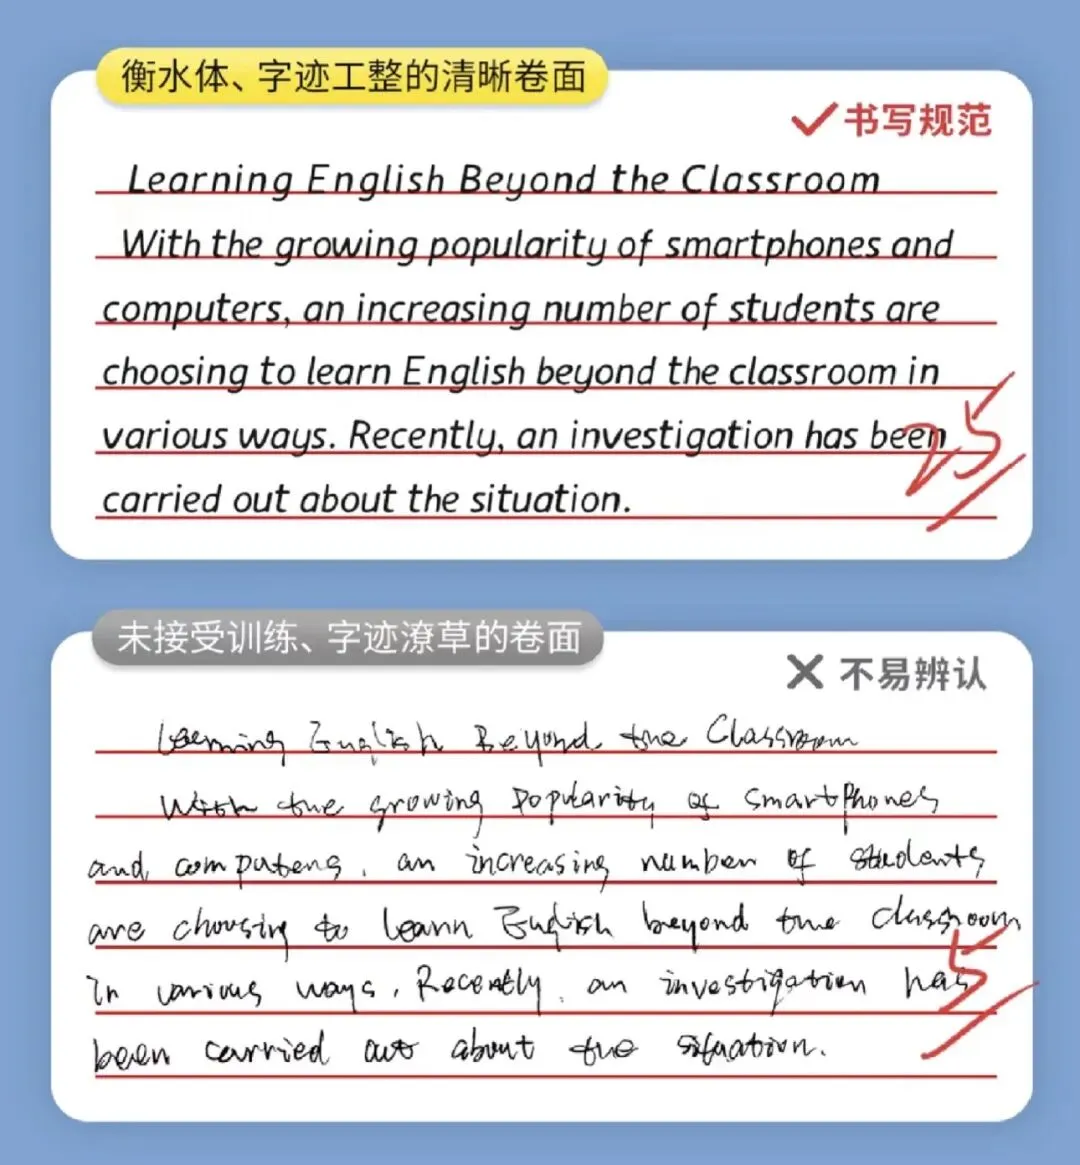 衡水体、字迹工整的清晰卷面
书写规范
Learning English Beyond the Classroom
With the growing popularity of smartphones and
computers, an increasing number of students are
choosing to learn English beyond the classroom in
various ways. Recently, an investigation has been
carried out about the situation.
25
未接受训练、字迹潦草的卷面
不易辨认
Learning English Beyond the Classroom
With the growing popularity of smartphones
and computers, an increasing number of students
are choosing to learn English beyond the classroom
in various ways. Recently, an investigation has
been carried out about the situation.
5